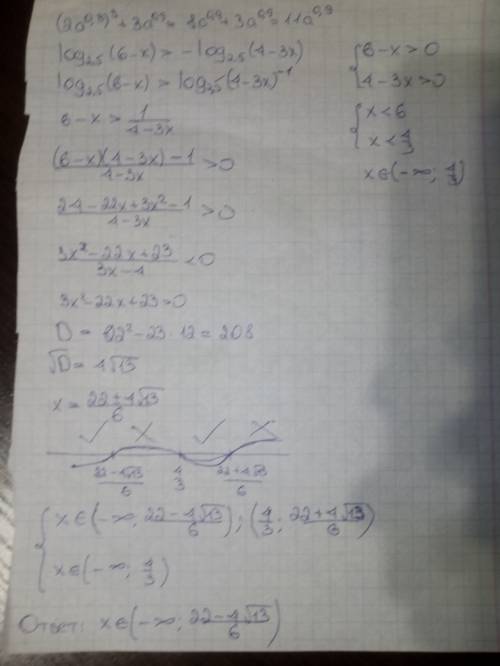 (2a^0,3)^3 + 3a^0,9 = 8a^0,9 + 3a^0,9 = 11a^0,9
log₂,₅(6-x) > -log₂,₅(4-3x)
{6-x>0
log₂,₅(6-x) > log₂,₅(4-3x)^-1
4-3x>0
6-x > 1/(4-3x)
{x<6
x<4/3
((6-x)(4-3x)-1)/(4-3x) > 0
x∈(-∞; 4/3)
(24-22x+3x²-1)/(4-3x) > 0
(3x²-22x+23)/(3x-4) < 0
3x²-22x+23=0
D = 22²-23·12 = 208
√D = 4√13
x = (22±4√13)/6
✓ × ✓ ×
(22-4√13)/6 4/3 (22+4√13)/6
{x∈(-∞; (22-4√13)/6); (4/3; (22+4√13)/6)
x∈(-∞; 4/3)
Ответ: x∈(-∞; (22-4√13)/6)